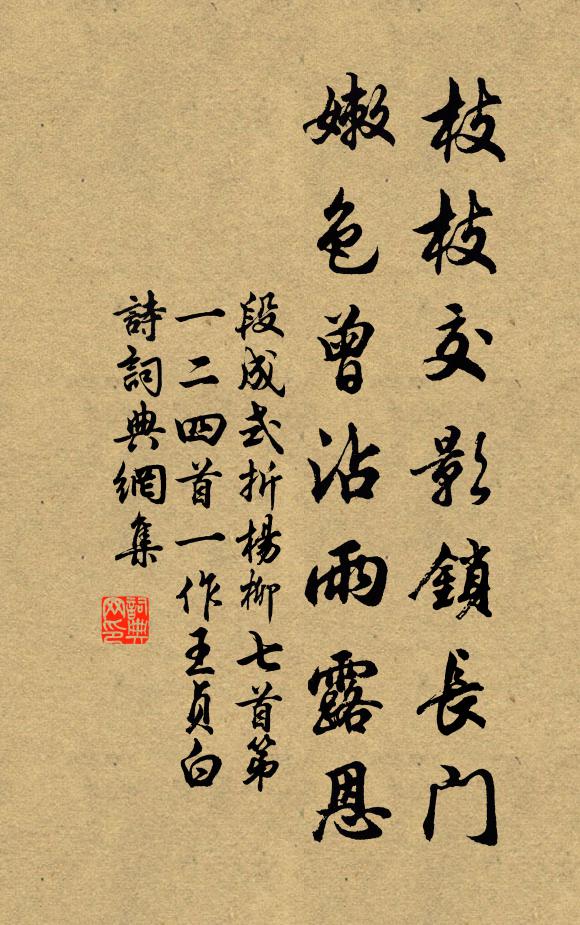 枝枝交影鎖長門
嫩色曾沾雨露恩
段成式折楊柳七首第
一二四首一作王貞白
詩詞典網集
詞典网印